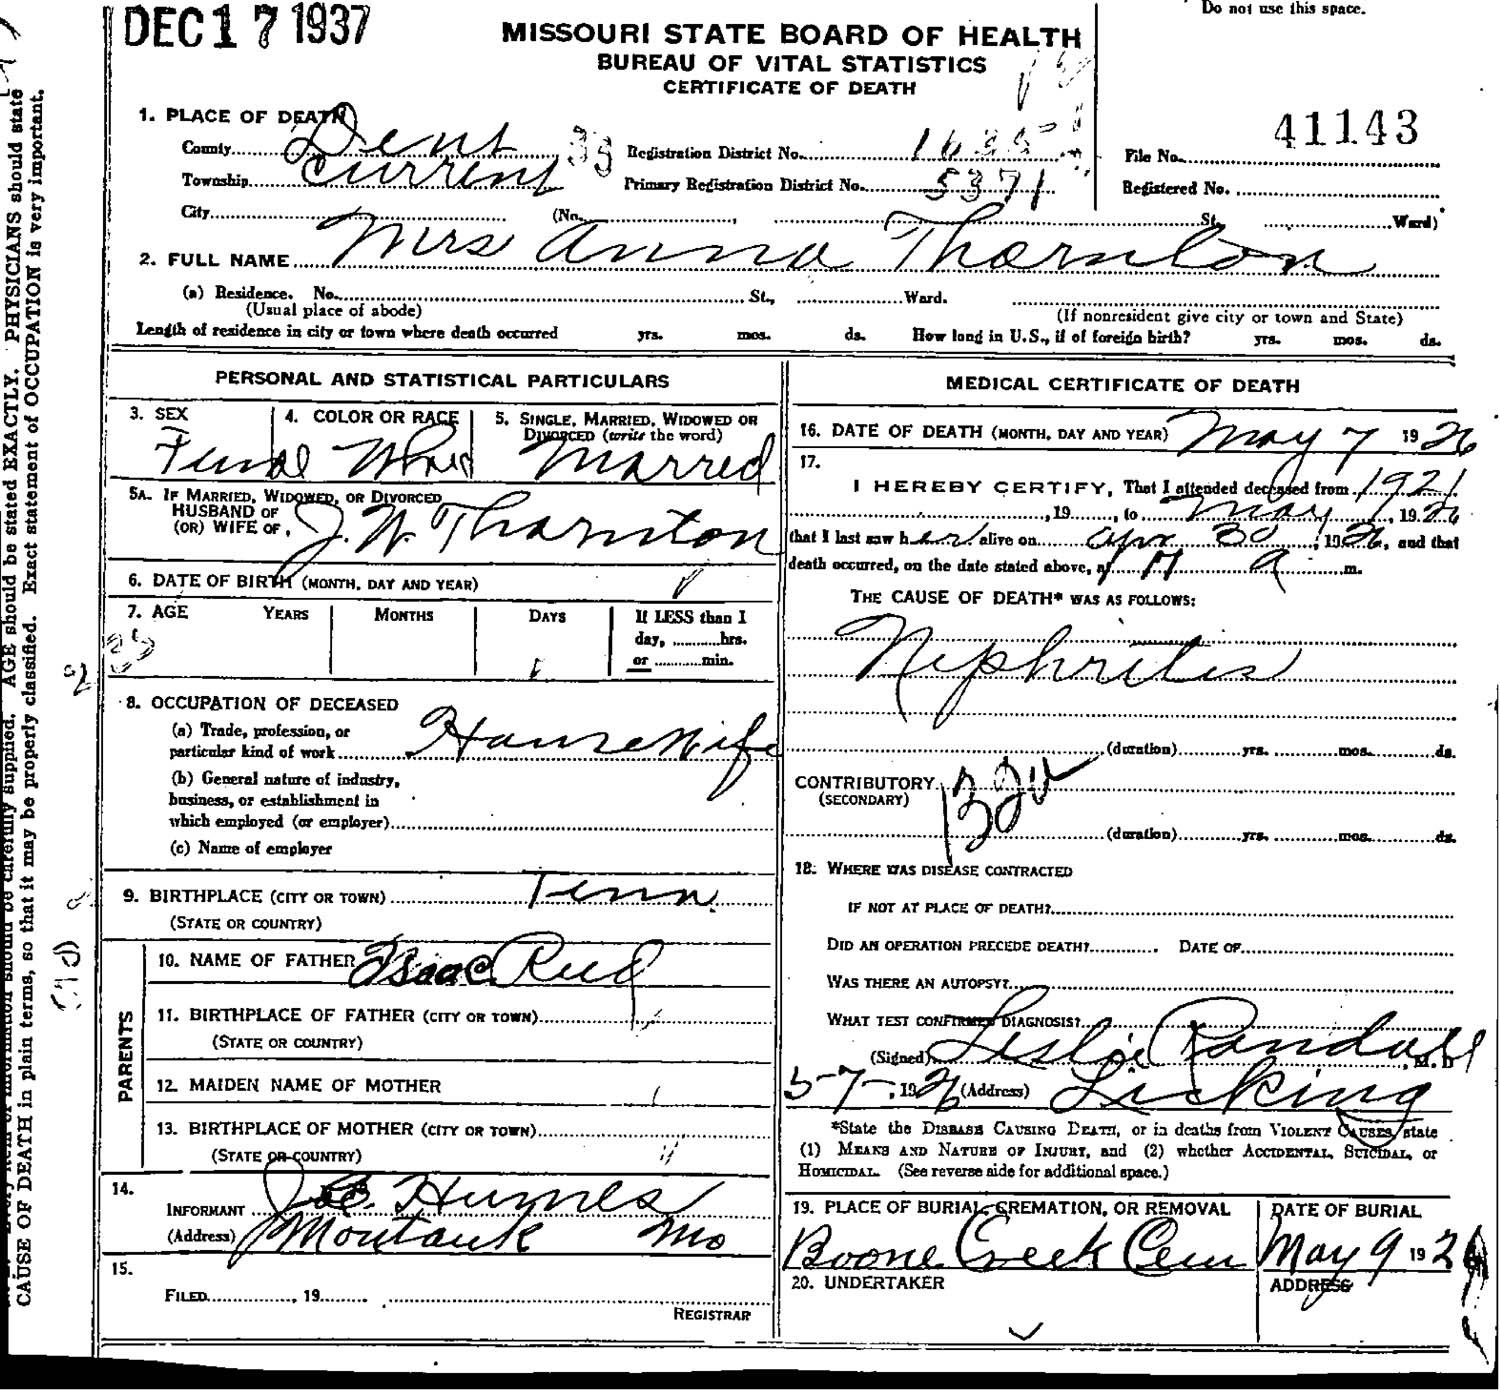 Do not use this space.
DEC 17 1937
MISSOURI STATE BOARD OF HEALTH
BUREAU OF VITAL STATISTICS
CERTIFICATE OF DEATH
1. PLACE OF DEATH
County Dent Registration District No.
Township Current Primary Registration District No. 5371
City (No. , St. Ward)
File No. 41143
Registered No.
2. FULL NAME Mrs Anna Thornton
(a) Residence. No. St., Ward.
(Usual place of abode) (If nonresident give city or town and State)
Length of residence in city or town where death occurred yrs. mos. ds. How long in U.S., if of foreign birth? yrs. mos. ds.
PERSONAL AND STATISTICAL PARTICULARS
3. SEX 4. COLOR OR RACE 5. SINGLE, MARRIED, WIDOWED OR
DIVORCED (write the word)
Married
5A. IF MARRIED, WIDOWED, OR DIVORCED
HUSBAND OF
(OR) WIFE OF J. W. Thornton
6. DATE OF BIRTH (MONTH, DAY AND YEAR)
7. AGE YEARS MONTHS DAYS If LESS than 1
day, hrs.
or min.
8. OCCUPATION OF DECEASED
(a) Trade, profession, or
particular kind of work Housewife
(b) General nature of industry,
business, or establishment in
which employed (or employer)
(c) Name of employer
9. BIRTHPLACE (CITY OR TOWN) Tenn.
(STATE OR COUNTRY)
PARENTS
10. NAME OF FATHER Isaac Reed
11. BIRTHPLACE OF FATHER (CITY OR TOWN)
(STATE OR COUNTRY)
12. MAIDEN NAME OF MOTHER
13. BIRTHPLACE OF MOTHER (CITY OR TOWN)
(STATE OR COUNTRY)
14.
INFORMANT Joe Humes
(Address) Montauk Mo
15.
FILED , 19
REGISTRAR
MEDICAL CERTIFICATE OF DEATH
16. DATE OF DEATH (MONTH, DAY AND YEAR) May 7 1926
17.
I HEREBY CERTIFY, That I attended deceased from 1921
, 19 , to May 1, 1926
that I last saw her alive on Apr 30, 1926, and that
death occurred, on the date stated above, at m.
THE CAUSE OF DEATH* WAS AS FOLLOWS:
Nephritis
(duration) yrs. mos. ds.
CONTRIBUTORY
(SECONDARY)
(duration) yrs. mos. ds.
18. WHERE WAS DISEASE CONTRACTED
IF NOT AT PLACE OF DEATH?
DID AN OPERATION PRECEDE DEATH? DATE OF
WAS THERE AN AUTOPSY?
WHAT TEST CONFIRMED DIAGNOSIS?
(Signed) Leslie Randall, M. D
5-7-, 1926 (Address) Licking
*State the DISEASE CAUSING DEATH, or in deaths from VIOLENT CAUSES, state
(1) MEANS AND NATURE OF INJURY, and (2) whether ACCIDENTAL, SUICIDAL, or
HOMICIDAL. (See reverse side for additional space.)
19. PLACE OF BURIAL, CREMATION, OR REMOVAL DATE OF BURIAL
Boone Creek Cem May 9 1926
20. UNDERTAKER ADDRESS
AGE should be stated EXACTLY. PHYSICIANS should state
CAUSE OF DEATH in plain terms, so that it may be properly classified. Exact statement of OCCUPATION is very important.